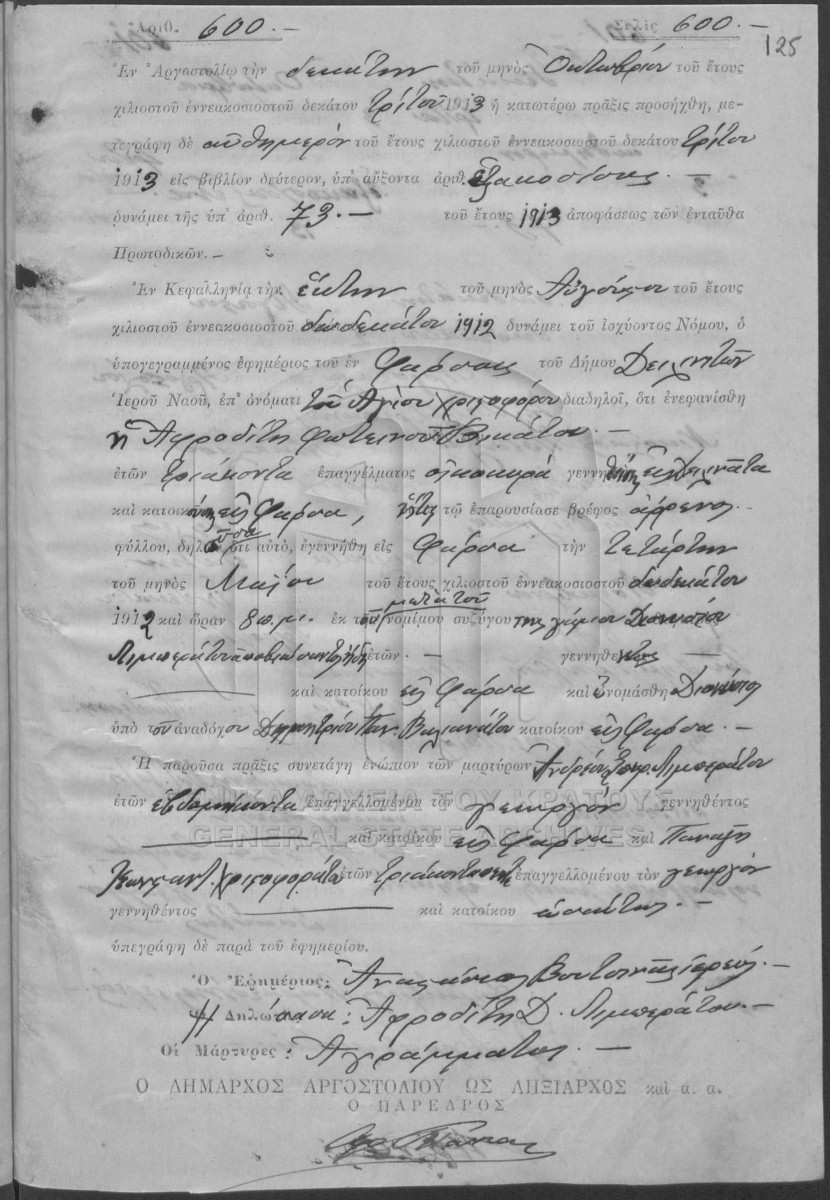 Ἀριθ. 600.— Σελὶς 600.—
125
Ἐν Ἀργοστολίῳ τὴν δεκάτην τοῦ μηνὸς Ὀκτωβρίου τοῦ ἔτους
χιλιοστοῦ ἐννεακοσιοστοῦ δεκάτου τρίτου 1913 ἡ κατωτέρω πρᾶξις προσήχθη, με-
τεγράφη δὲ αὐθημερὸν τοῦ ἔτους χιλιοστοῦ ἐννεακοσιοστοῦ δεκάτου τρίτου
1913 εἰς βιβλίον δεύτερον, ὑπ' αὔξοντα ἀριθ. ἑξακοσίους.—
δυνάμει τῆς ὑπ' ἀριθ. 73.— τοῦ ἔτους 1913 ἀποφάσεως τῶν ἐνταῦθα
Πρωτοδικῶν.—
Ἐν Κεφαλληνίᾳ τὴν ἕκτην τοῦ μηνὸς Αὐγούστου τοῦ ἔτους
χιλιοστοῦ ἐννεακοσιοστοῦ δωδεκάτου 1912 δυνάμει τοῦ ἰσχύοντος Νόμου, ὁ
ὑπογεγραμμένος ἐφημέριος τοῦ ἐν Φάρσαις τοῦ Δήμου Δειλινατῶν
Ἱεροῦ Ναοῦ, ἐπ' ὀνόματι τοῦ Ἁγίου Χριστοφόρου διαδηλοῖ, ὅτι ἐνεφανίσθη
ἡ Ἀφροδίτη Φωτεινοῦ Βικάτου.—
ἐτῶν τριάκοντα ἐπαγγέλματος οἰκοκυρὰ γεννηθεῖσα εἰς Δειλινᾶτα
καὶ κατοικοῦσα εἰς Φάρσα, ἥτις τῷ ἐπαρουσίασε βρέφος ἄρρενος
φύλλου, δηλοῦσα ὅτι αὐτὸ, ἐγεννήθη εἰς Φάρσα τὴν τετάρτην
τοῦ μηνὸς Μαΐου τοῦ ἔτους χιλιοστοῦ ἐννεακοσιοστοῦ δωδεκάτου
1912 καὶ ὥραν 8 π.μ. ἐκ τοῦ μετὰ τοῦ νομίμου συζύγου της γάμου Διονυσίου
Λιμπεράτου ἀποβιώσαντος ἤδη ἐτῶν — γεννηθέντος
καὶ κατοίκου εἰς Φάρσα καὶ ὠνομάσθη Διονύσιος
ὑπὸ τοῦ ἀναδόχου Δημητρίου Παν. Βαλιανάτου κατοίκου εἰς Φάρσα.—
Ἡ παροῦσα πρᾶξις συνετάγη ἐνώπιον τῶν μαρτύρων Ἀνδρέου Σπυρ. Λιμπεράτου
ἐτῶν ἑβδομήκοντα ἐπαγγελλομένου τὸν γεωργὸν γεννηθέντος
καὶ κατοίκου εἰς Φάρσα καὶ Παναγῆ
Κωνσταντ. Χριστοφοράτου ἐτῶν τριάκοντα ἐπαγγελλομένου τὸν γεωργὸν
γεννηθέντος — καὶ κατοίκου ὡσαύτως.—
ὑπεγράφη δὲ παρὰ τοῦ ἐφημερίου.
Ὁ Ἐφημέριος: Ἀναστάσιος Βουτσινᾶς ἱερεύς.—
Ἡ Δηλώσασα: Ἀφροδίτη Δ. Λιμπεράτου.—
Οἱ Μάρτυρες: Ἀγράμματοι.—
Ο ΔΗΜΑΡΧΟΣ ΑΡΓΟΣΤΟΛΙΟΥ ΩΣ ΛΗΞΙΑΡΧΟΣ καὶ α. α.
Ο ΠΑΡΕΔΡΟΣ
ΓΕΝΙΚΑ ΑΡΧΕΙΑ ΤΟΥ ΚΡΑΤΟΥΣ
GENERAL STATE ARCHIVES